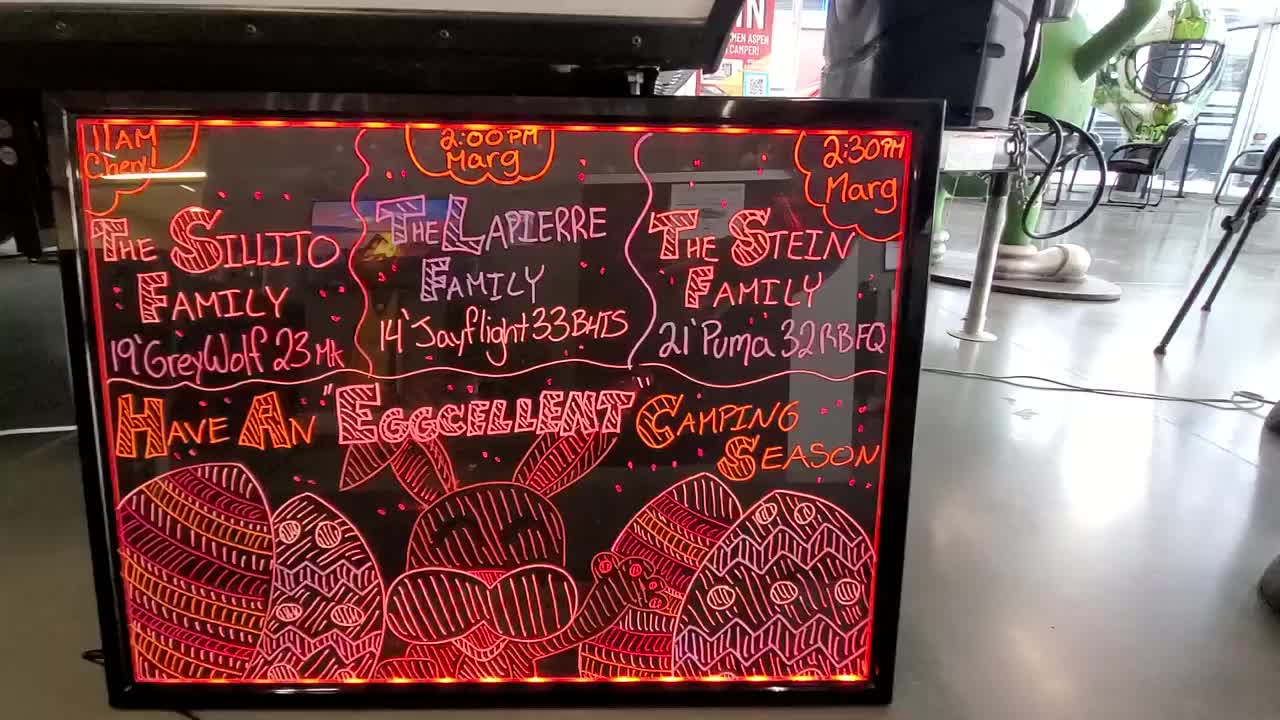 IN
MEN ASPEN
CAMPER!
11AM
Cheryl
THE SILLITO
FAMILY
19' GreyWolf 23 MK
2:00PM
Marg
THE LAPIERRE
FAMILY
14' Jayflight 33 BHTS
2:30PM
Marg
THE STEIN
FAMILY
21' Puma 32RBFQ
HAVE AN "EGGCELLENT" CAMPING
SEASON